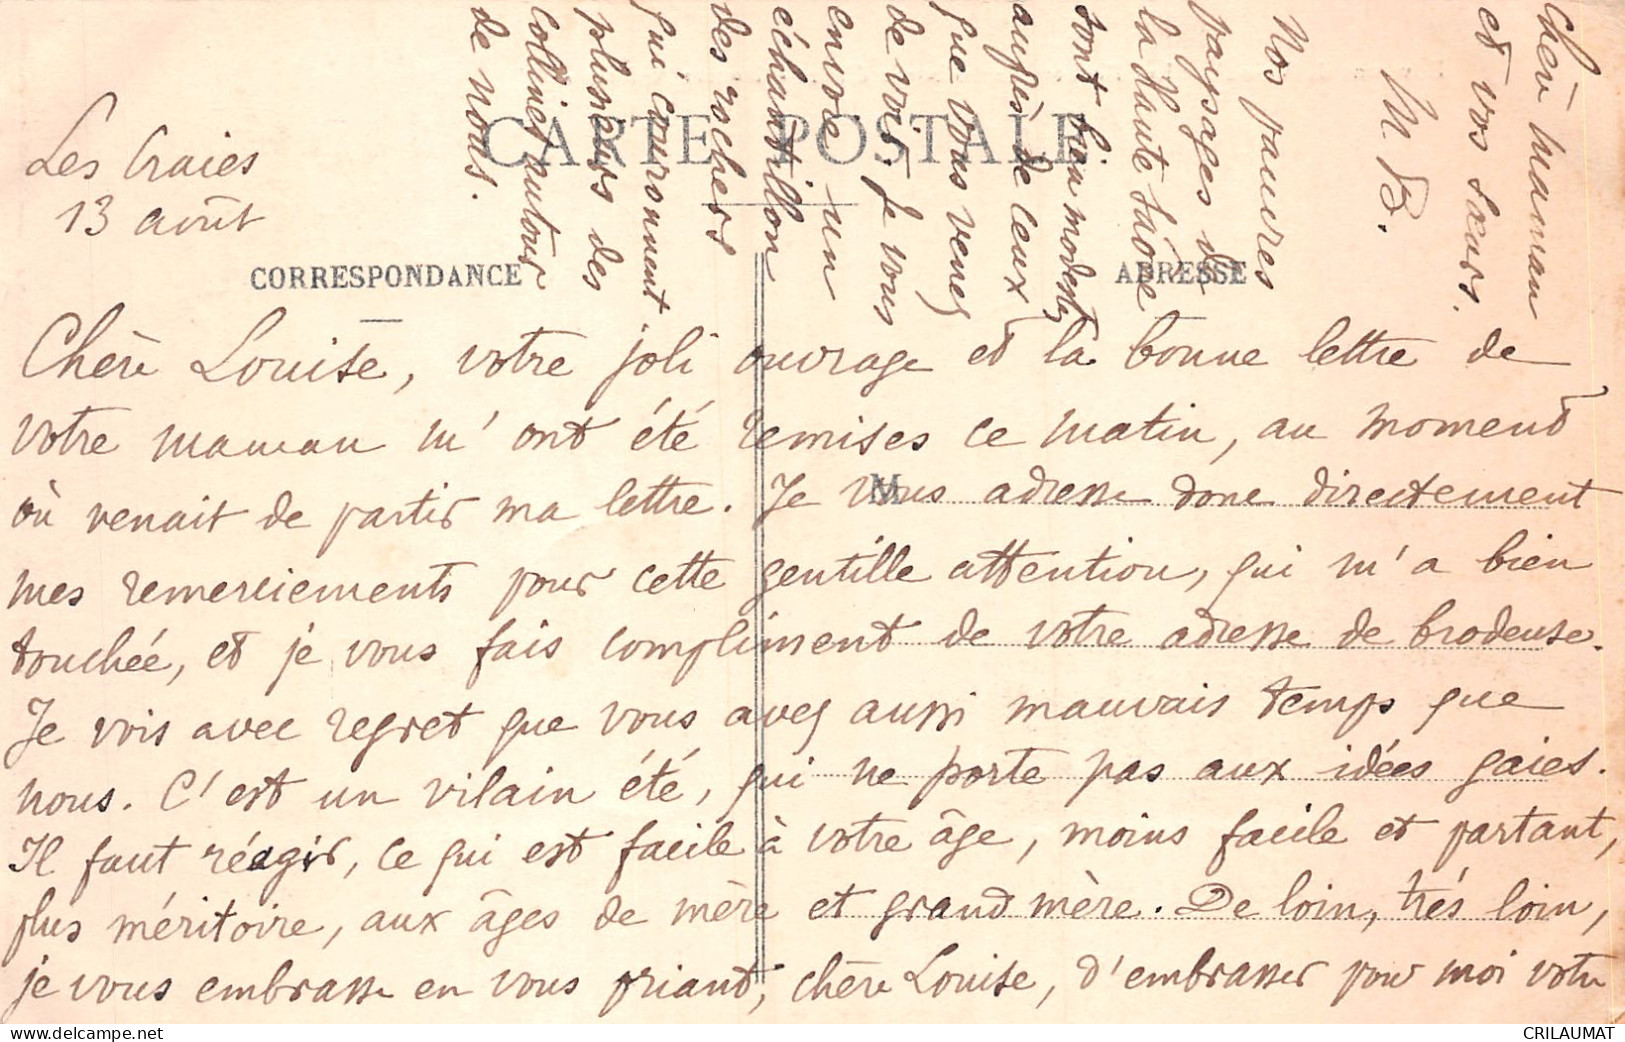 CARTE POSTALE
Les Craies
13 août
CORRESPONDANCE
ADRESSE
M
Chère Louise, votre joli ouvrage et la bonne lettre de
votre maman m'ont été remises ce matin, au moment
où venait de partir ma lettre. Je vous adresse donc directement
mes remerciements pour cette gentille attention, qui m'a bien
touchée, et je vous fais compliment de votre adresse de brodeuse.
Je vois avec regret que vous avez aussi mauvais temps que
nous. C'est un vilain été, qui ne porte pas aux idées gaies.
Il faut réagir, ce qui est facile à votre âge, moins facile et partant,
plus méritoire, aux âges de mère et grand mère. De loin, très loin,
je vous embrasse en vous priant, chère Louise, d'embrasser pour moi votre
chère maman
et vos sœurs.
M. B.
Nos pauvres
paysages de
la Haute Saône
sont bien modestes
auprès de ceux
que vous venez
de voir. Je vous
envoie un
échantillon
des rochers
qui couronnent
plusieurs des
collines autour
de nous.
CRILAUMAT
www.delcampe.net